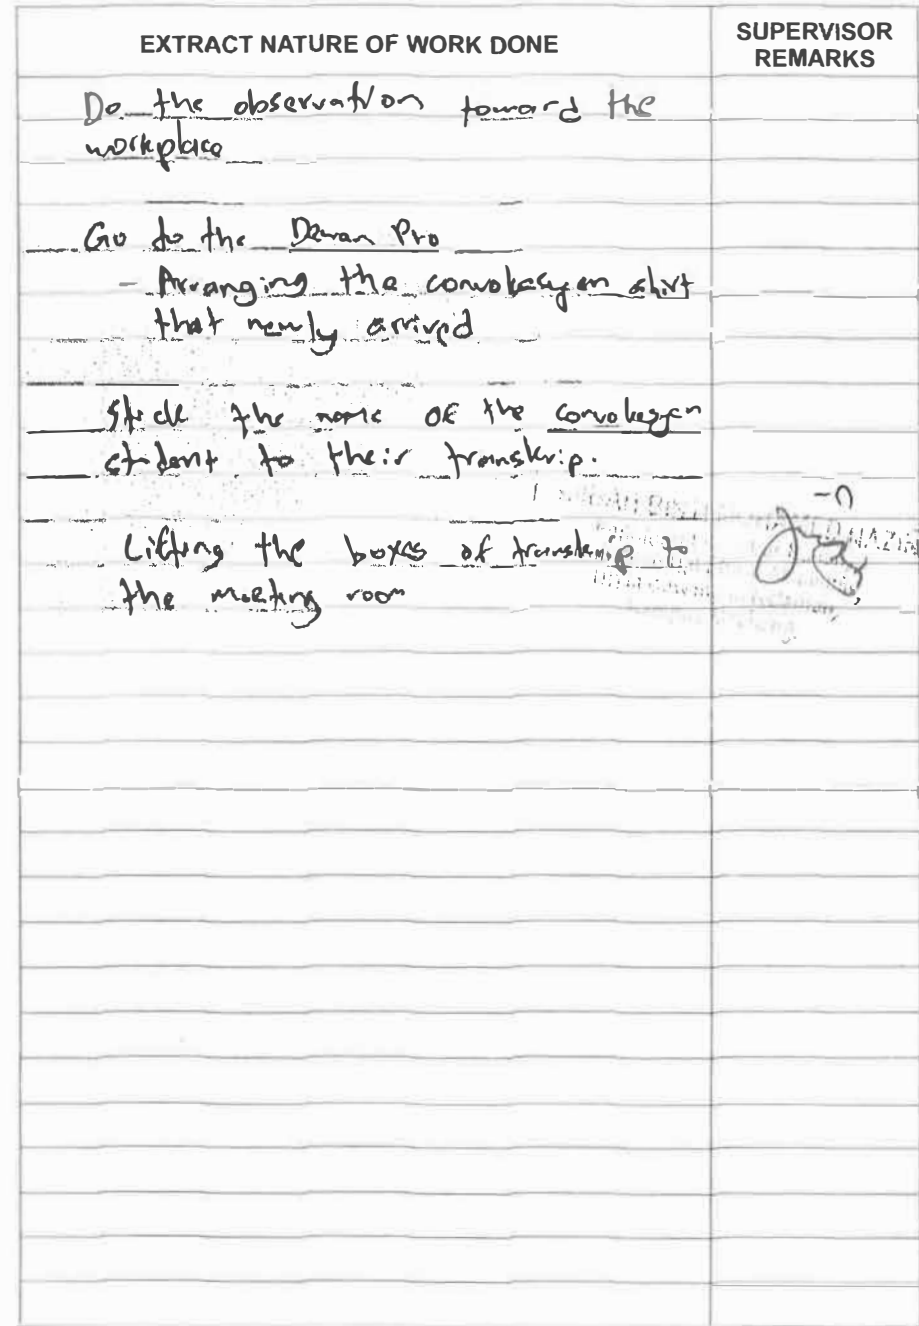 EXTRACT NATURE OF WORK DONE
SUPERVISOR
REMARKS
Do the observation toward the
workplace
Go to the Dewan Pro
- Arranging the convokesyen shirt
that newly arrived
Stick the name of the convokesyen
student to their transkrip.
Lifting the boxes of transkrip to
the meeting room